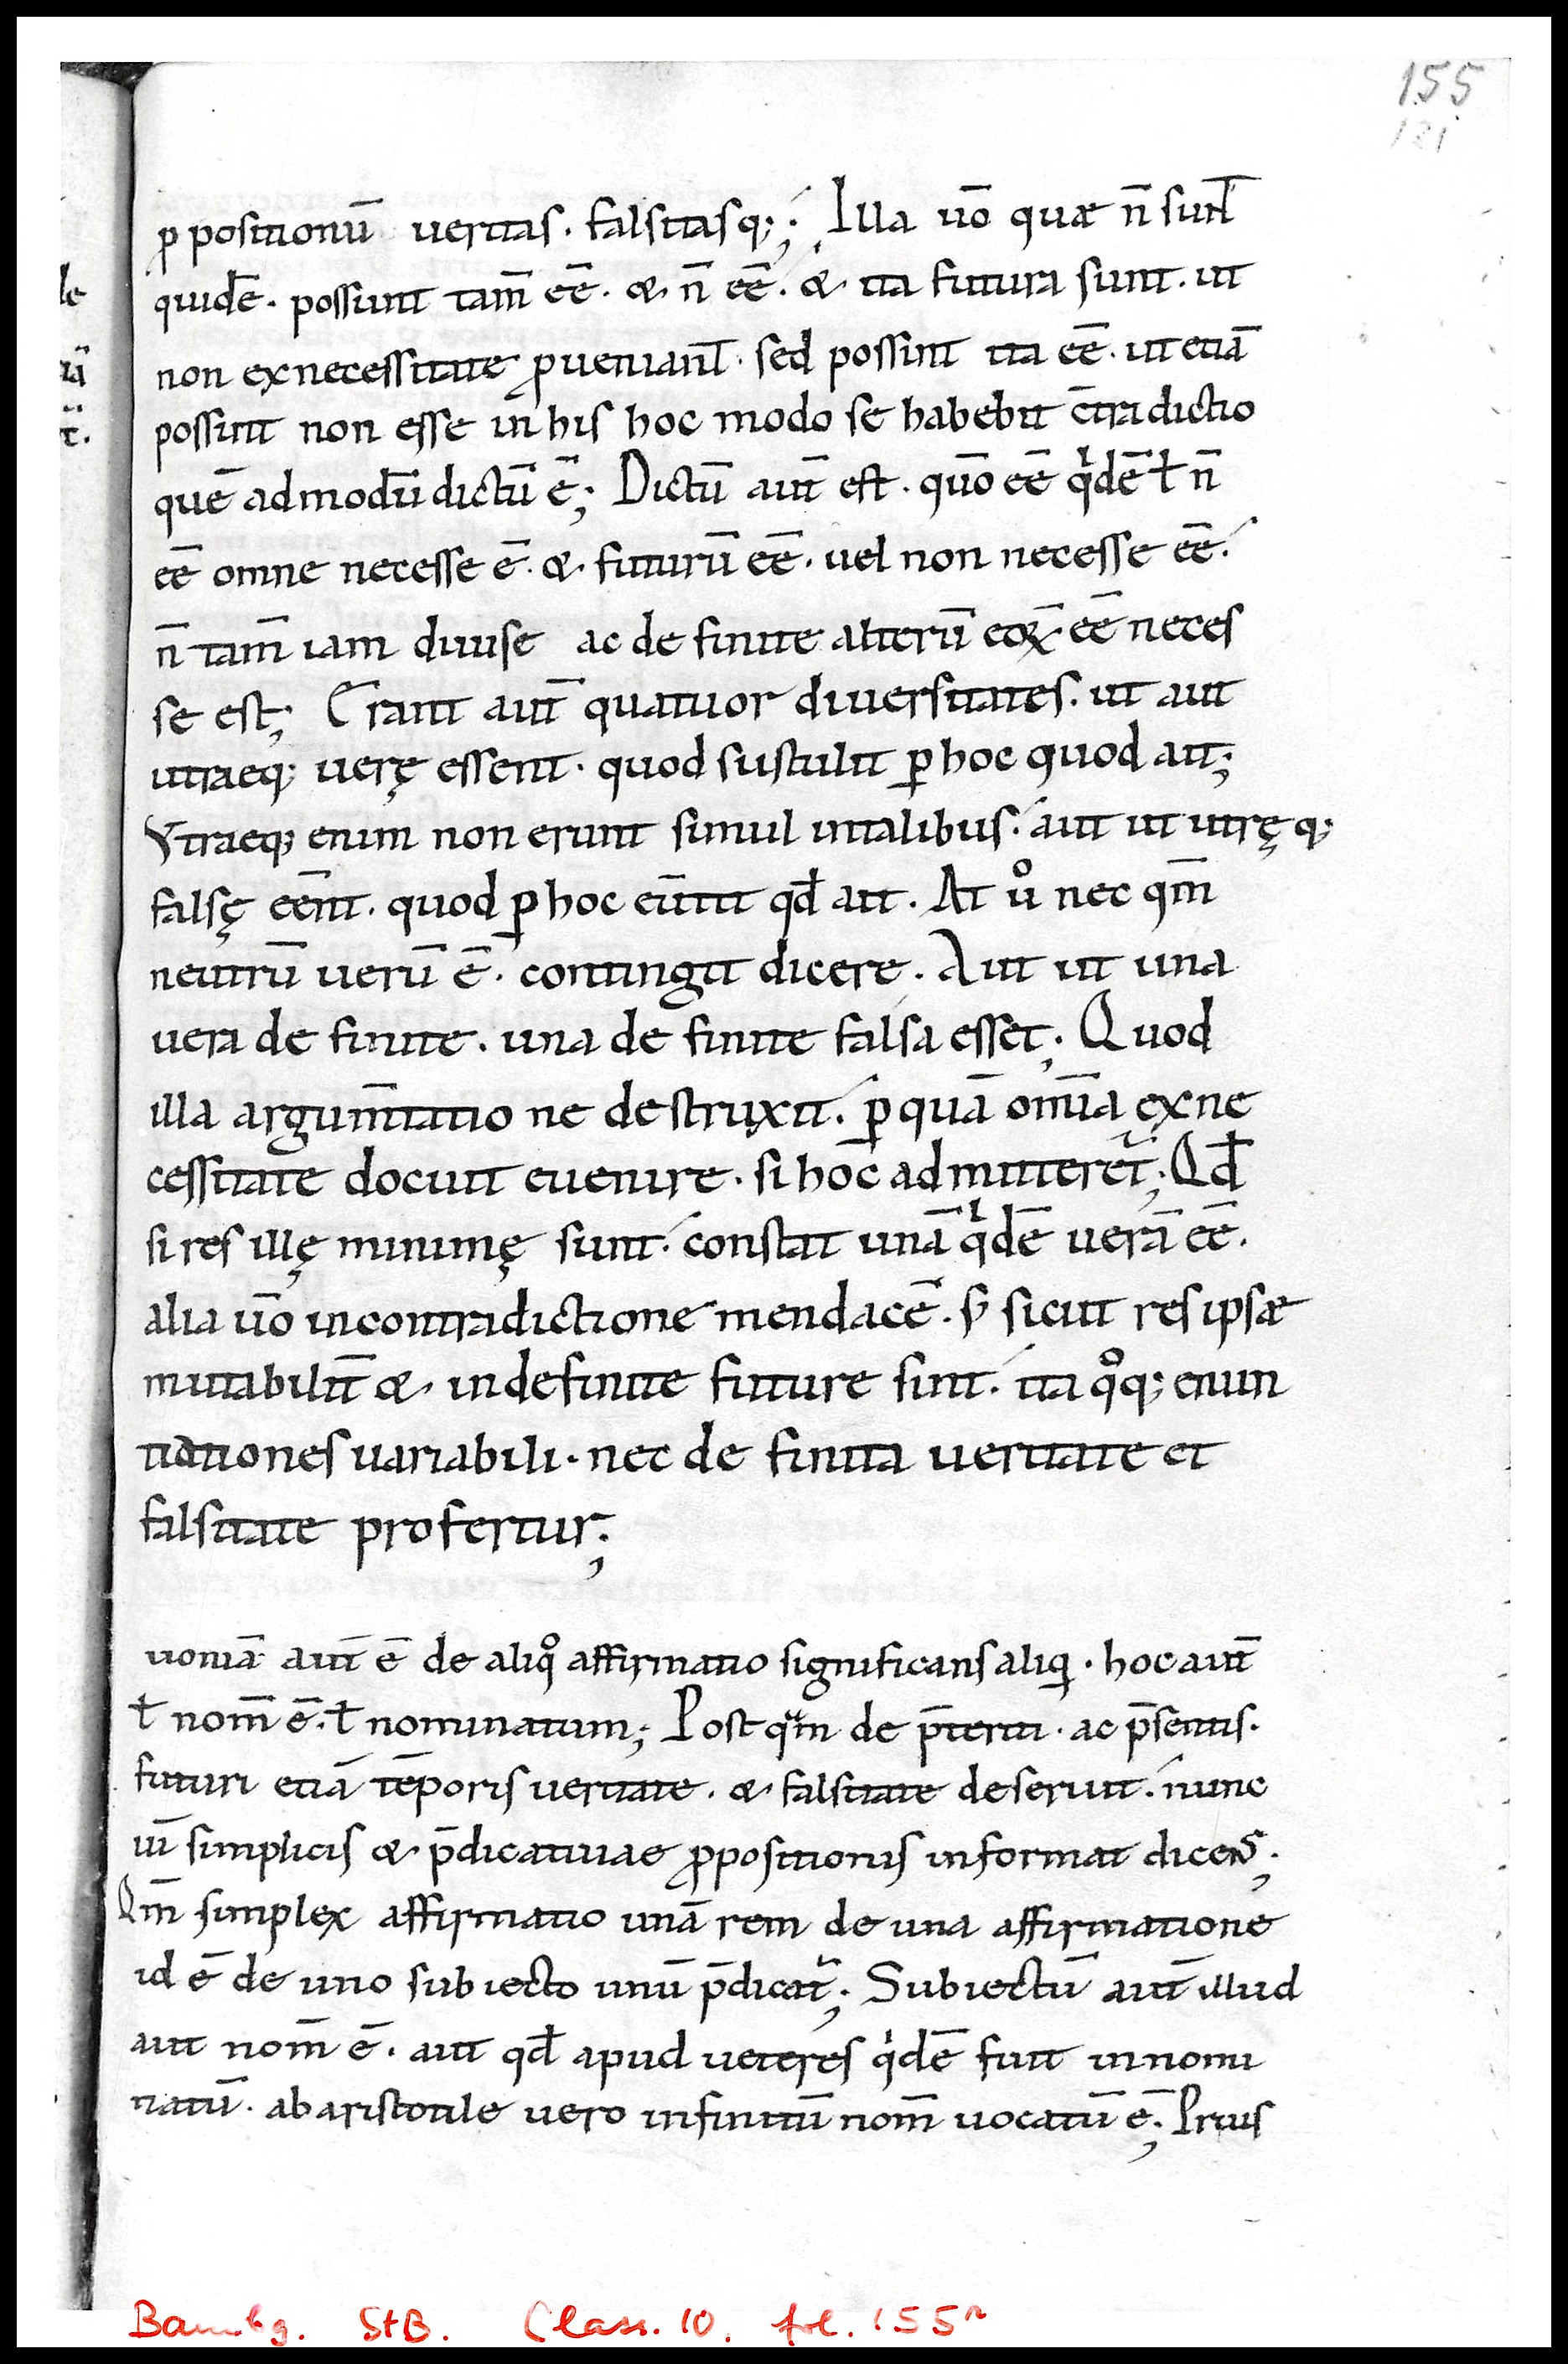 155
121
ꝓpositionū ueritas. falsitasq;; Illa ūo quæ n̄ sunt
quidē. possunt tam̄ eē̄. & n̄ eē̄. & ita futura sunt. ut
non ex necessitate ꝓueniant. sed possint ita eē̄. ut etiā
possint non esse in his hoc modo se habebit c̄tradictio
quē admodū dictū ē; Dictū aut̄ est. quō eē̄ qͥdē ł n̄
eē̄ omne necesse ē. & futurū eē̄. uel non necesse eē̄.
n̄ tam̄ iam diuise ac de finite alterū eoꝝ eē̄ neces
se est; Erant aut̄ quatuor diuersitates. ut aut
utraeq; uerę essent. quod sustulit ꝑ hoc quod ait;
Vtraeq; enim non erunt simul in talibus. aut ut utręq;
falsę eēnt. quod ꝑ hoc eūtit qđ ait. At uͦ nec qm̄
neutrū uerū ē. contingit dicere. Aut ut una
uera de finite. una de finite falsa esset; Quod
illa argum̄tatio ne destruxit. ꝑ quā om̄ia ex ne
cessitate docuit euenire. si hoc admitteret᷑; Qđ
si res illę minimę sunt. constat unā qͥdē uerā eē̄.
alia ūo in contradictione mendacē. s; sicut res ipsæ
mutabilit̄ & indefinite future sint. ita qͦq; enun
tiationes uariabili. nec de finita ueritate et
falsitate profertur;
uoniā aut̄ ē de aliqͦ affirmatio significans aliqͥ. hoc aut̄
ł nom̄ ē. ł nominatum; Post qᵃm de p̄teriti. ac p̄sentis.
futuri etiā tēporis ueritate. & falsitate deseruit. nunc
ui̅ simplicis & p̄dicatiuae ꝓpositionis informat dicens;
Qm̄ simplex affirmatio unā rem de una affirmatione
id ē de uno subiecto unū p̄dicat᷑; Subiectū aut̄ illud
aut nom̄ ē. aut qđ apud ueteres qͥdē fuit innomi
natū. ab aristotile uero infinitū nom̄ uocatū ē; Prius
Bambg. StB. Class. 10. fol. 155ʳ